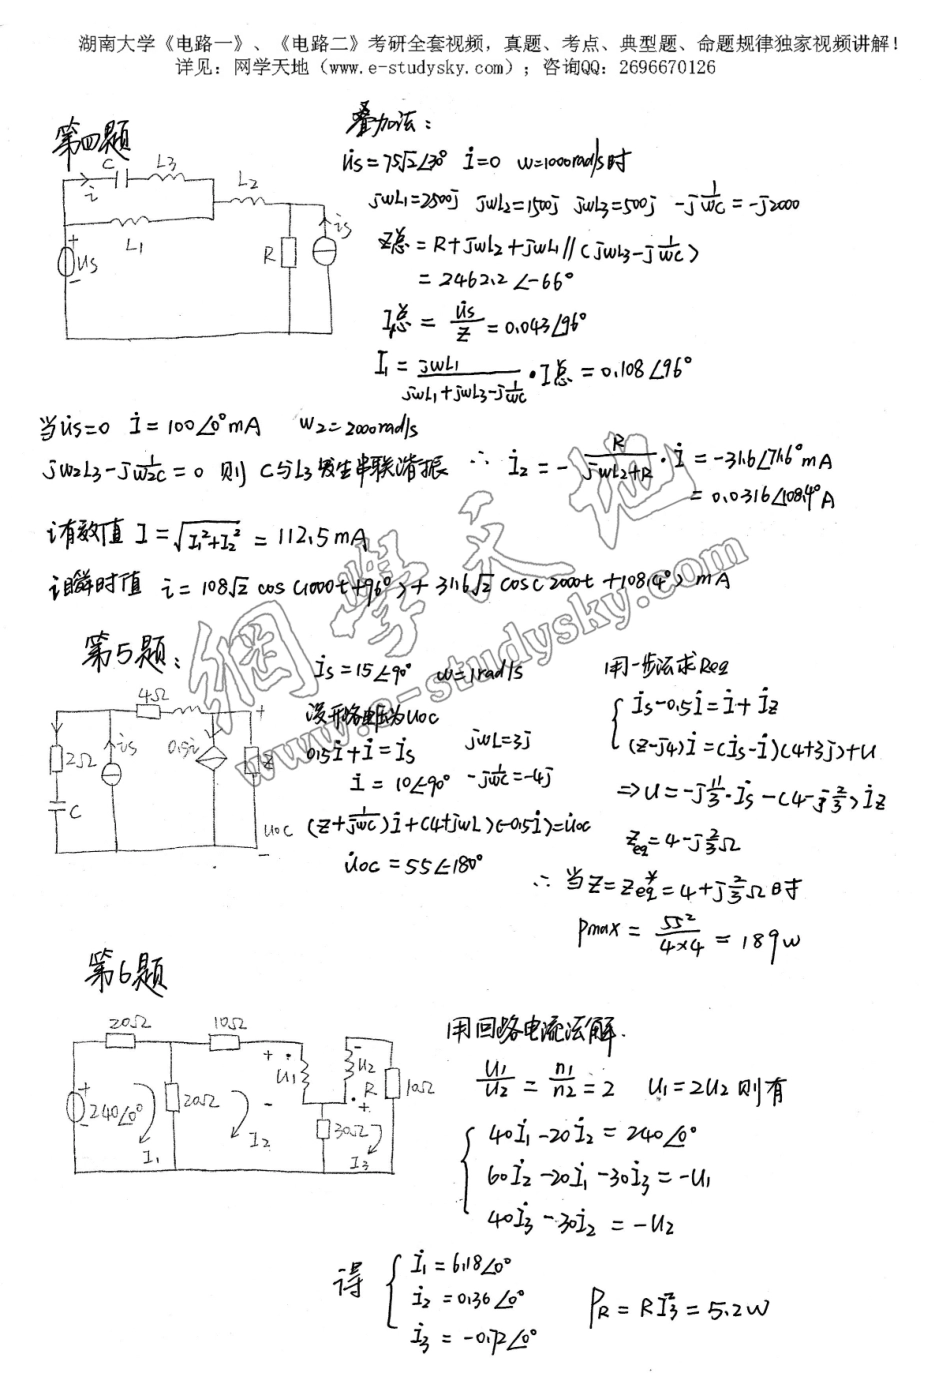 湖南大学《电路一》、《电路二》考研全套视频，真题、考点、典型题、命题规律独家视频讲解！
详见：网学天地（www.e-studysky.com）；咨询QQ：2696670126
第四题
叠加法：
U̇s=75√2∠30° İ=0 w=1000rad/s时
jwL1=2500j jwL2=1500j jwL3=500j -j1/wc=-j2000
Z总=R+jwL2+jwL1//(jwL3-j1/wc)
=2462.2∠-66°
I总=U̇s/Z=0.043∠96°
I1=jwL1/(jwL1+jwL3-j1/wc)·I总=0.108∠96°
C L3 L2
i
L1
is
R
+
us
-
当U̇s=0 İ=100∠0°mA w2=2000rad/s
jw2L3-j1/w2c=0 则C与L3发生串联谐振 ∴ İ2=-R/(jwL2+R)·İ=-31.6∠71.6°mA
=0.0316∠108.4°A
i有效值 I=√(I1²+I2²)=112.5mA
i瞬时值 i=108√2cos(1000t+96°)+31.6√2cos(2000t+108.4°)mA
網學天地
www.e-studysky.com
第5题：
İs=15∠90° w=1rad/s
设开路电压为Uoc
0.5i+i=is jwL=3j
i=10∠90° -j1/wc=-4j
(2+1/jwc)i+(4+jwL)(-0.5i)=U̇oc
U̇oc=55∠180°
4Ω
2Ω
is
0.5i
Z
C
+
Uoc
-
用一步法求Req
İs-0.5İ=İ+İz
(2-j4)İ=(İs-İ)(4+3j)+U
⇒U=-j11/3·İs-(4-j2/3)İz
Zeq=4-j2/3Ω
∴当Z=Zeq*=4+j2/3Ω时
Pmax=55²/(4×4)=189W
第6题
20Ω 10Ω
+ -
U1 U2
R 10Ω
- +
+
240∠0°
-
20Ω
30Ω
I1 I2 I3
用回路电流法解.
U1/U2=n1/n2=2 U1=2U2则有
40İ1-20İ2=240∠0°
60İ2-20İ1-30İ3=-U1
40İ3-30İ2=-U2
得
İ1=6.18∠0°
İ2=0.36∠0°
İ3=-0.72∠0°
PR=RI3²=5.2W